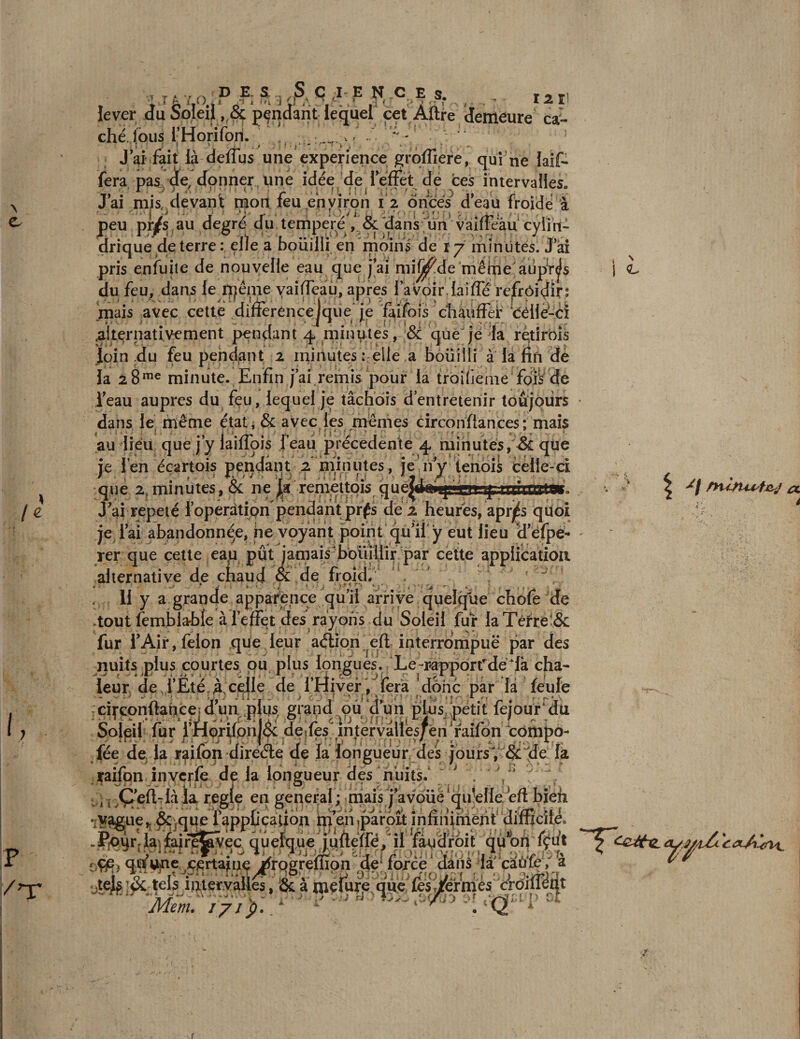 DES SCIENCES. 121
lever du Soleil, & pendant lequel cet Aſtre demeure ca-
ché ſous l'Horiſon.
J'ai fait là deſſus une experience groſſiere, qui ne laiſ-
ſera pas de donner une idée de l'effet de ces intervalles.
J'ai mis devant mon feu environ 12 onces d'eau froide à
peu prés au degré du temperé, & dans un vaiſſeau cylin-
drique de terre: elle a boüilli en moins de 17 minutes. J'ai
pris enſuite de nouvelle eau que j'ai miſe de même auprés
du feu, dans le même vaiſſeau, apres l'avoir laiſſé refroidir;
mais avec cette difference que je faiſois chauffer celle-ci
alternativement pendant 4 minutes, & que je la retirois
loin du feu pendant 2 minutes: elle a boüilli à la fin de
la 28me minute. Enfin j'ai remis pour la troiſiéme fois de
l'eau aupres du feu, lequel je tâchois d'entretenir toûjours
dans le même état, & avec les mêmes circonſtances; mais
au lieu que j'y laiſſois l'eau précedente 4 minutes, & que
je l'en écartois pendant 2 minutes, je n'y tenois celle-ci
que 2 minutes, & ne la remettois que
J'ai repeté l'operation pendant prés de 2 heures, aprés quoi
je l'ai abandonnée, ne voyant point qu'il y eut lieu d'eſpe-
rer que cette eau pût jamais boüillir par cette application
alternative de chaud & de froid.
Il y a grande apparence qu'il arrive quelque choſe de
tout ſemblable à l'effet des rayons du Soleil ſur la Terre &
ſur l'Air, ſelon que leur action eſt interrompuë par des
nuits plus courtes ou plus longues. Le rapport de la cha-
leur de l'Été à celle de l'Hiver, ſera donc par la ſeule
circonſtance d'un plus grand ou d'un plus petit ſejour du
Soleil ſur l'Horiſon & de ſes intervalles en raiſon compo-
ſée de la raiſon directe de la longueur des jours, & de la
raiſon inverſe de la longueur des nuits.
C'eſt-là la regle en general; mais j'avoüe qu'elle eſt bien
vague, & que l'application m'en paroît infiniment difficile.
Pour la faire avec quelque juſteſſe, il faudroit qu'on ſçût
ce, qu'une certaine progreſſion de force dans la cauſe, à
tels & tels intervalles, & à meſure que ſes termes croiſſent
Mem. 1719. . Q
e
/e
l,
P
/T
e
minutes a
cette application